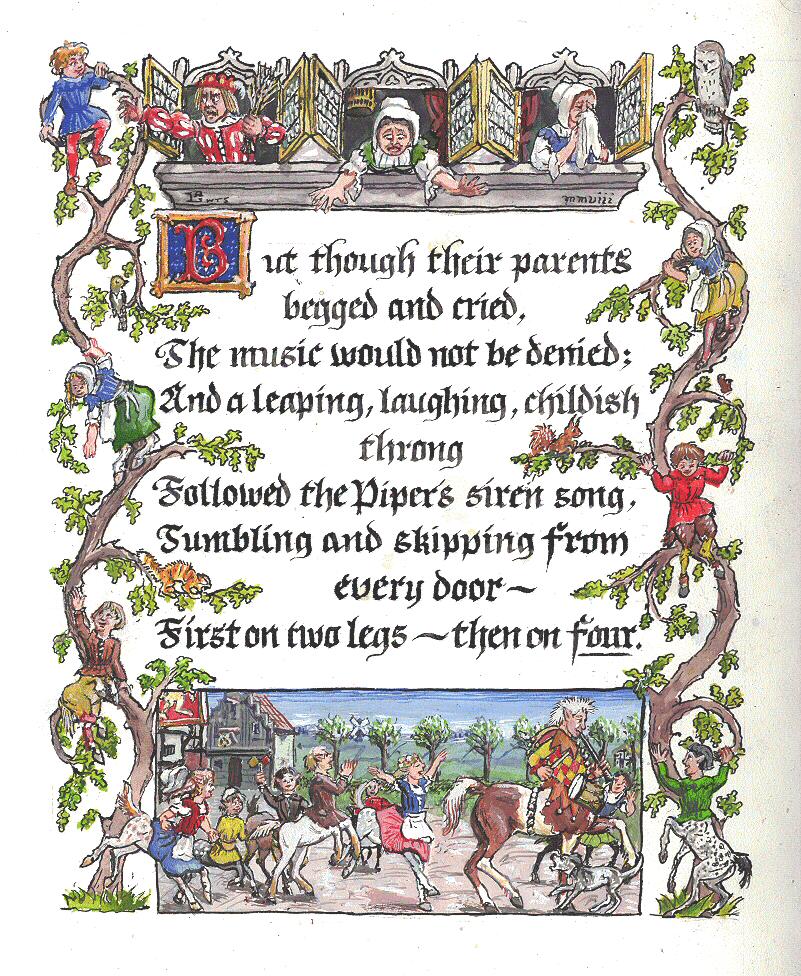 mmviii
But though their parents
begged and cried,
The music would not be denied;
And a leaping, laughing, childish
throng
Followed the Piper's siren song,
Tumbling and skipping from
every door~
First on two legs ~ then on four.